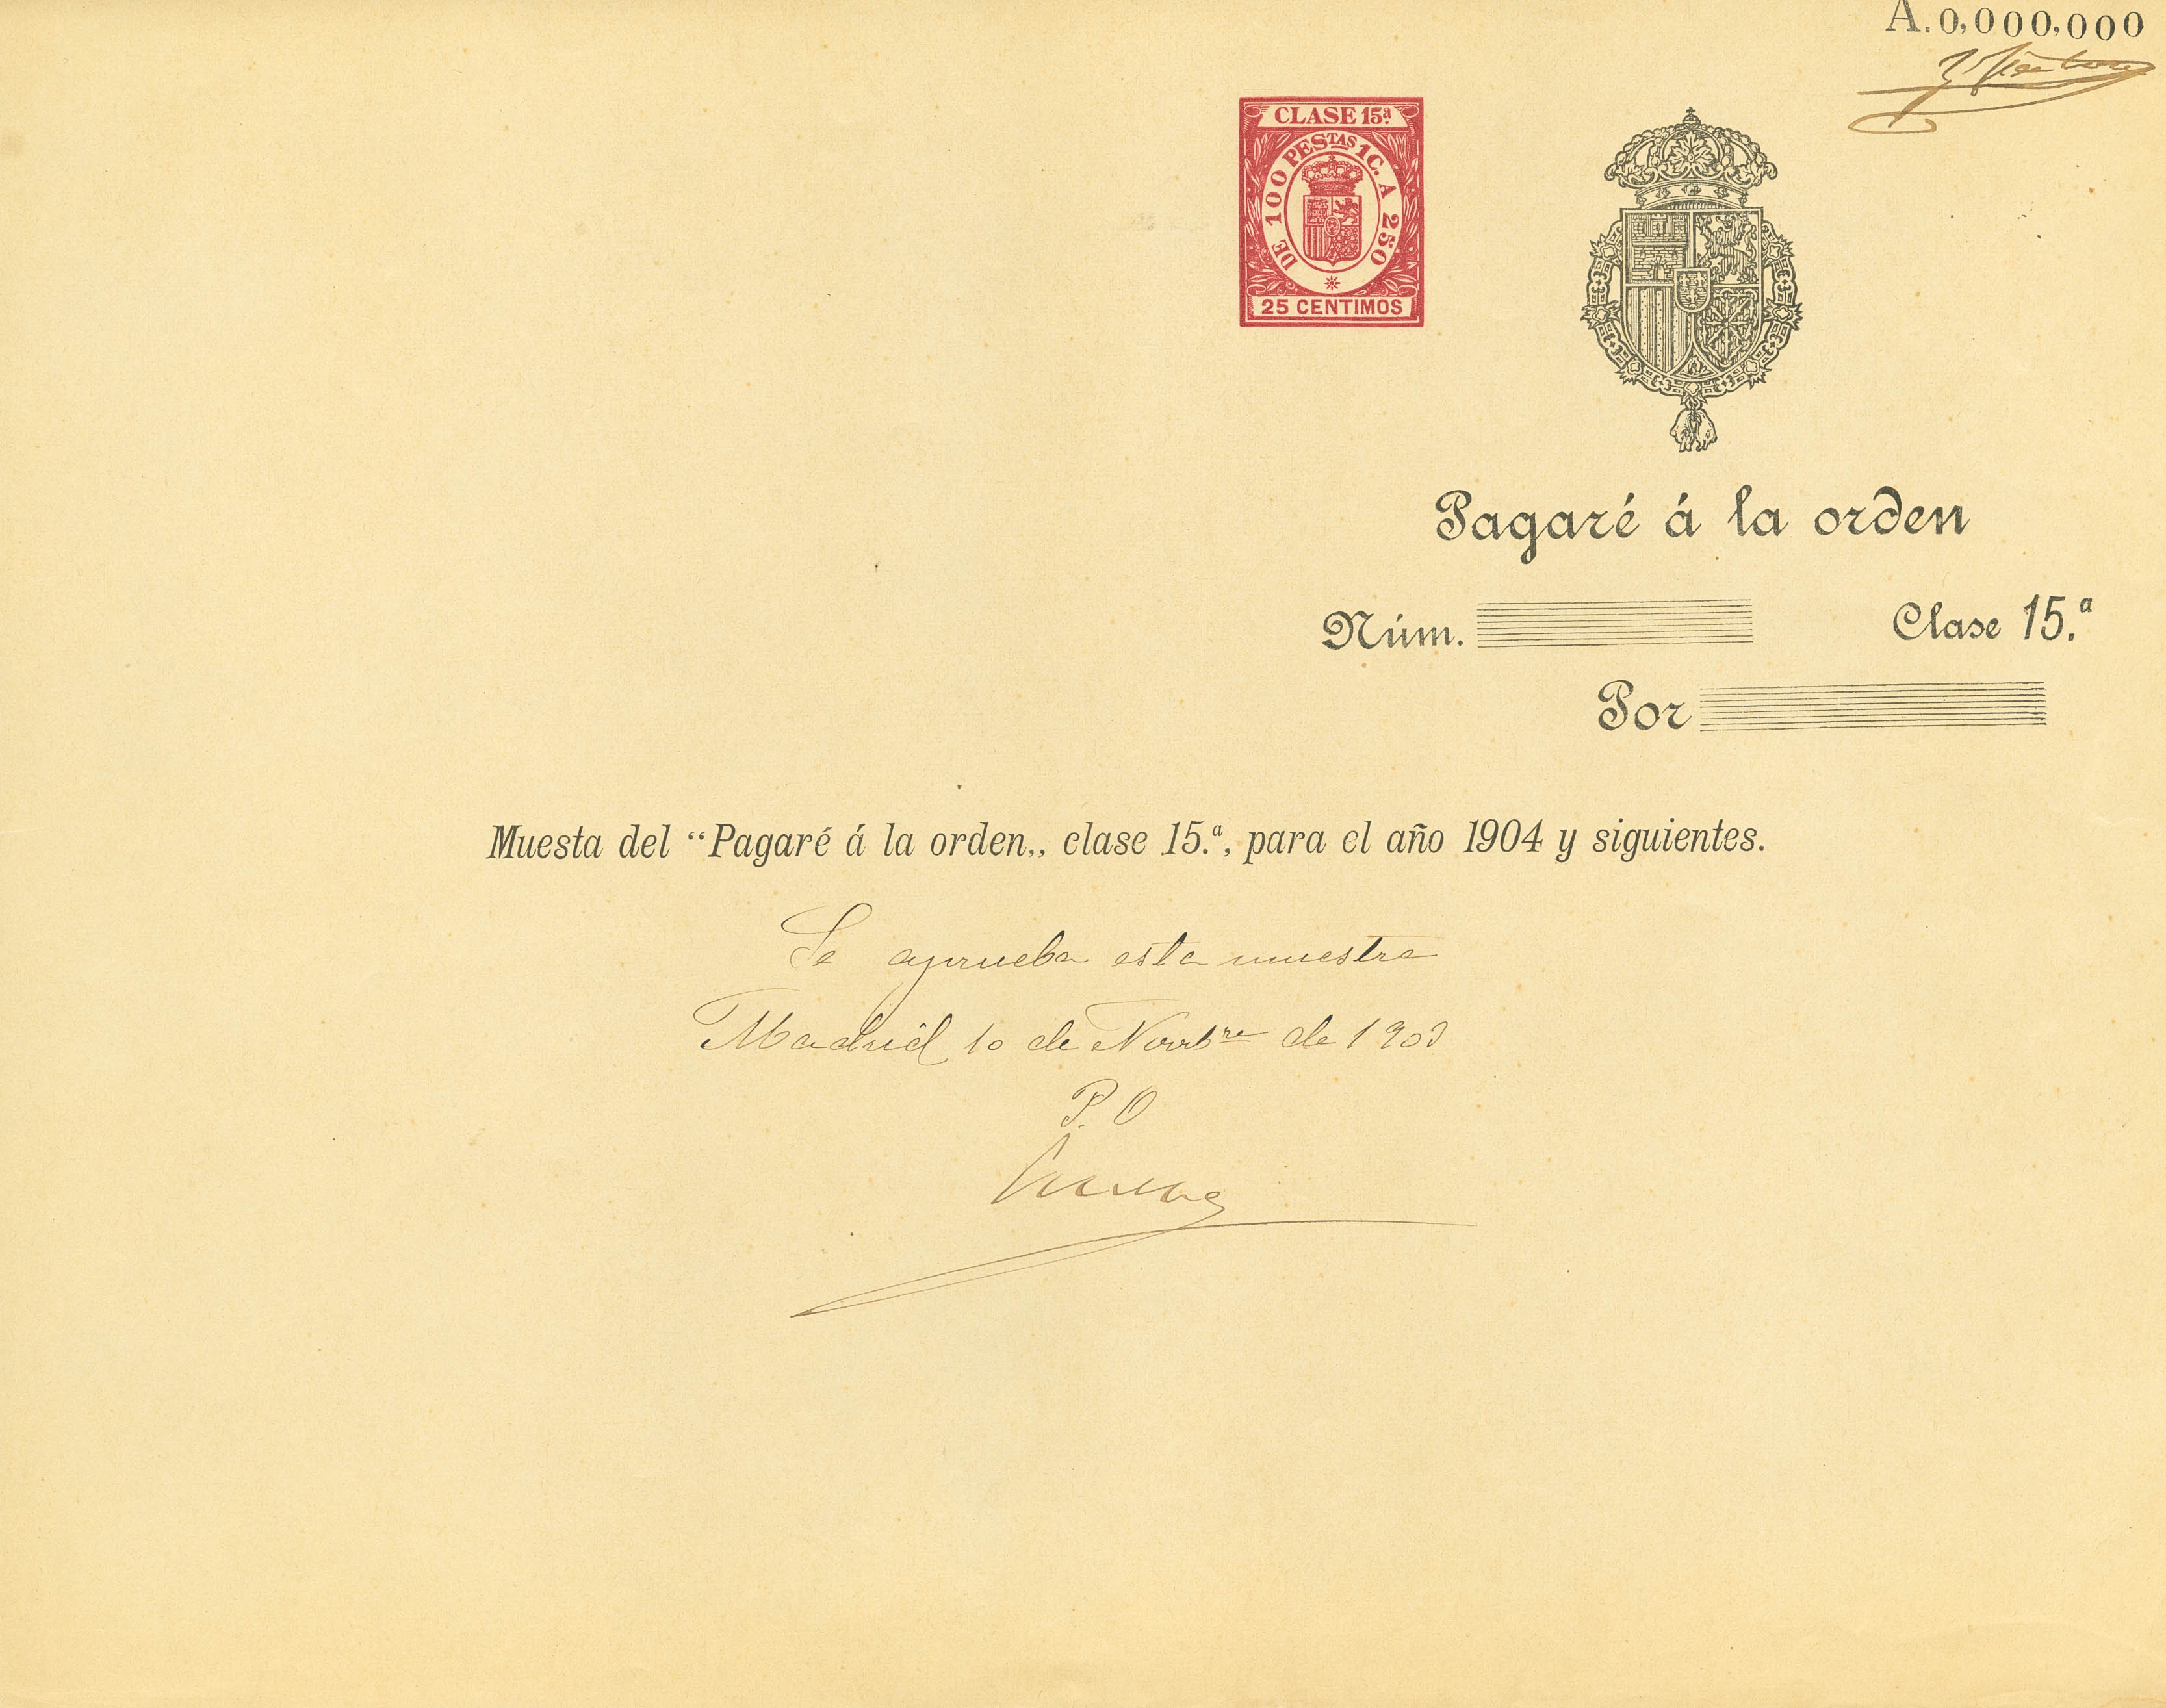 A. 0,000,000
CLASE 15ª
DE 100 PESTAS 1C. A 250
25 CENTIMOS
Pagaré á la orden
Núm.
Clase 15.ª
Por
Muesta del “Pagaré á la orden„ clase 15.ª, para el año 1904 y siguientes.
Se aprueba esta muestra
Madrid 10 de Novbre de 1903
P. O